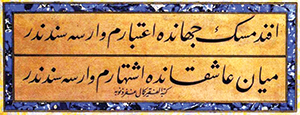 افندمسك جهانده اعتبارم وارسه سندندر
ميان عاشقانده اشتهارم وارسه سندندر